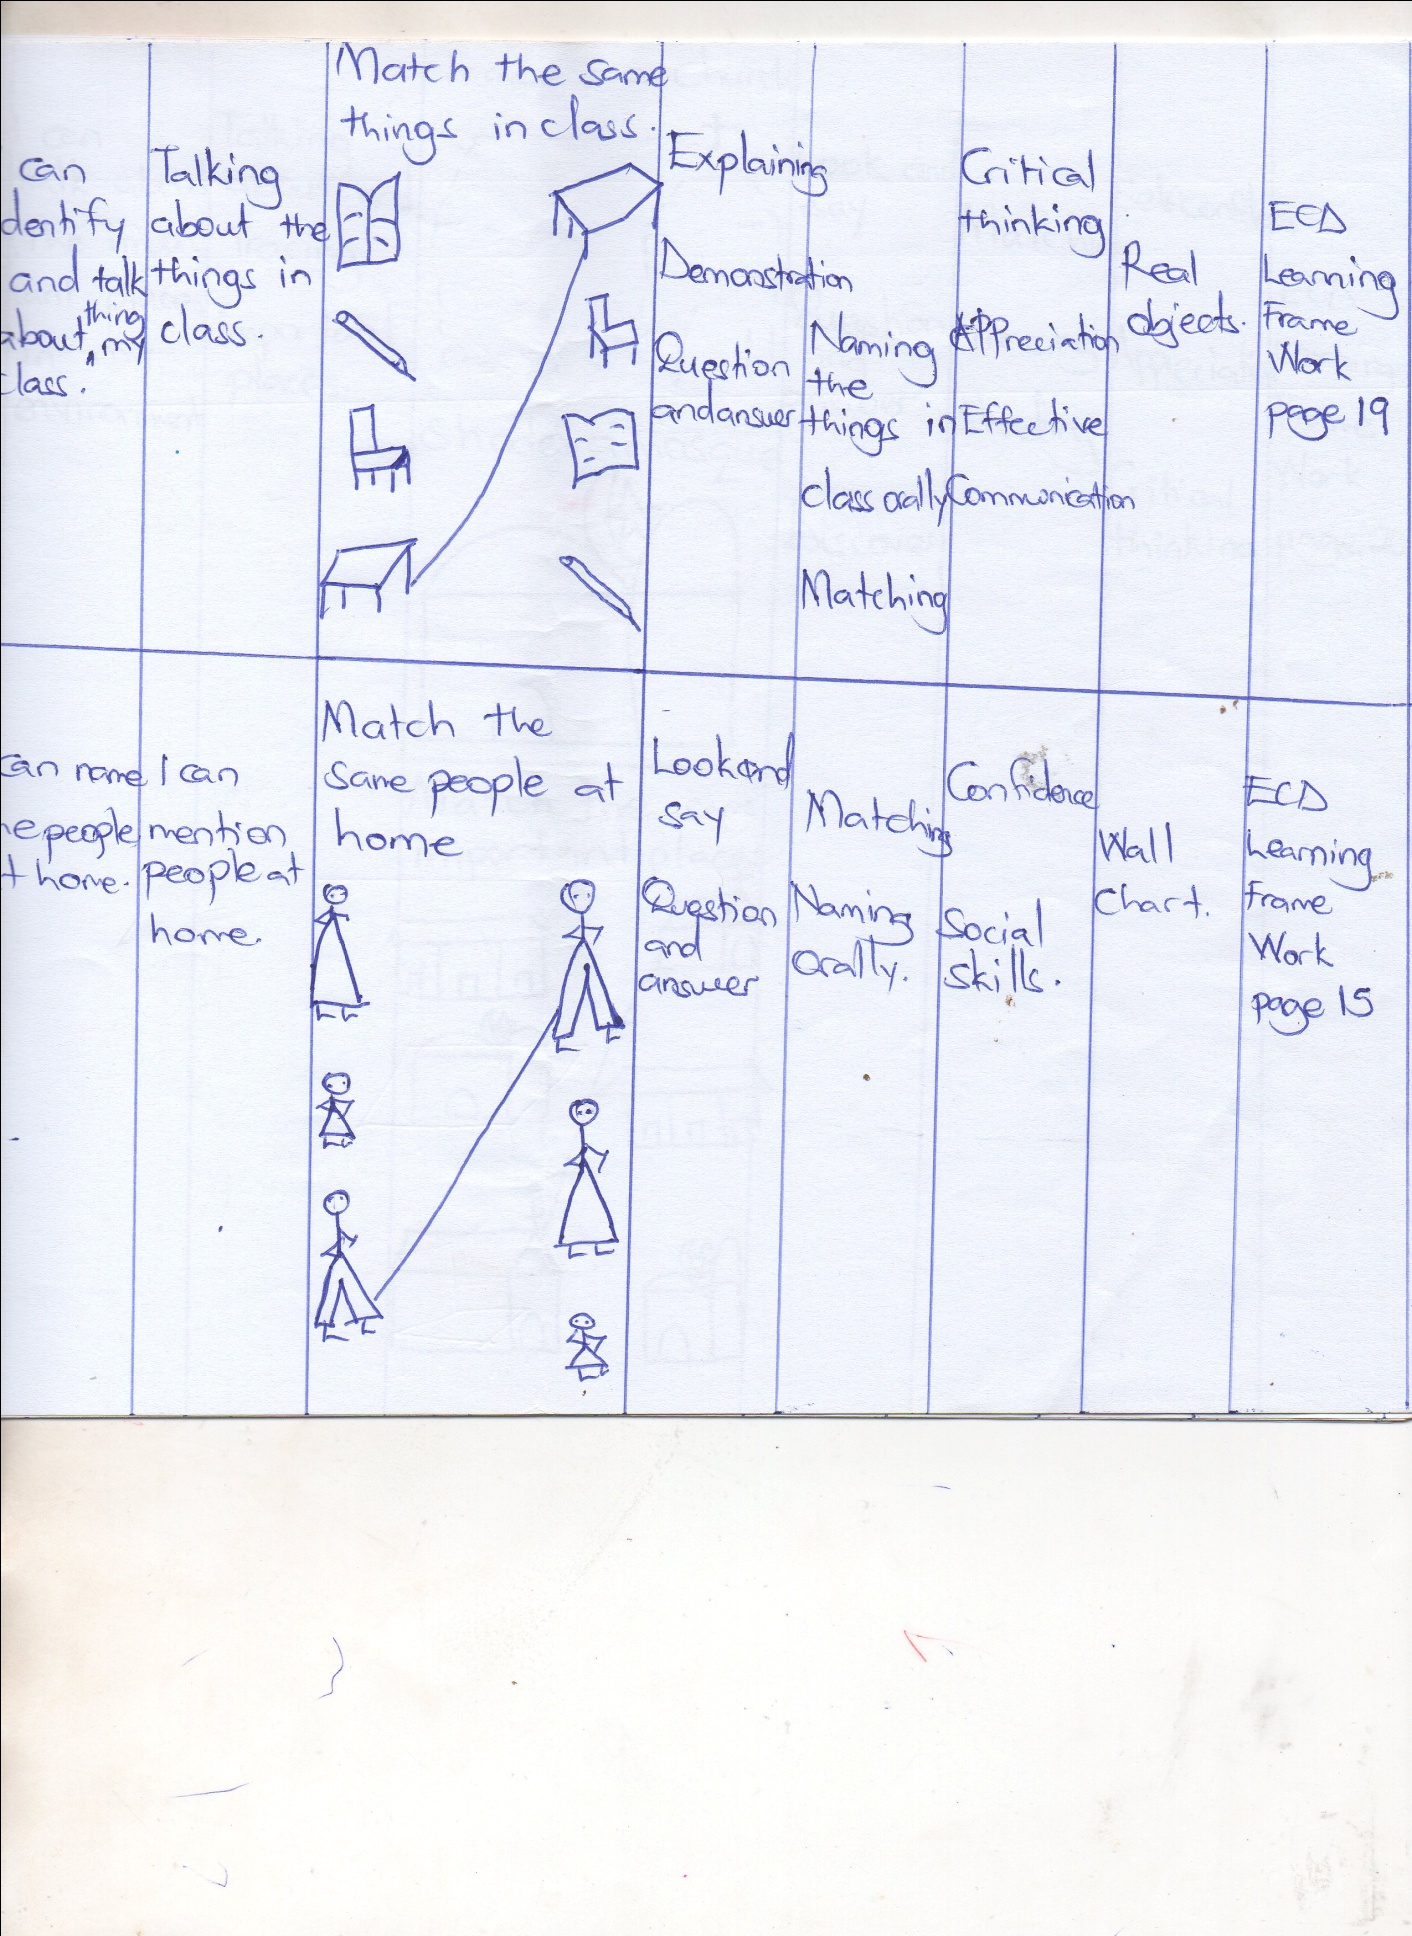 can
dentify
and talk
about thing my
class.
Talking
about the
things in
class.
Match the same
things in class.
Explaining
Demonstration
Question
and answer
Naming
the
things in
class orally
Matching
Critical
thinking
Appreciation
Effective
Communication
Real
objects.
ECD
Learning
Frame
Work
page 19
can name
he people
t home.
I can
mention
people at
home.
Match the
same people at
home
Look and
say
Question
and
answer
Matching
Naming
orally.
Confidence
Social
skills.
Wall
Chart.
ECD
Learning
Frame
Work
page 15